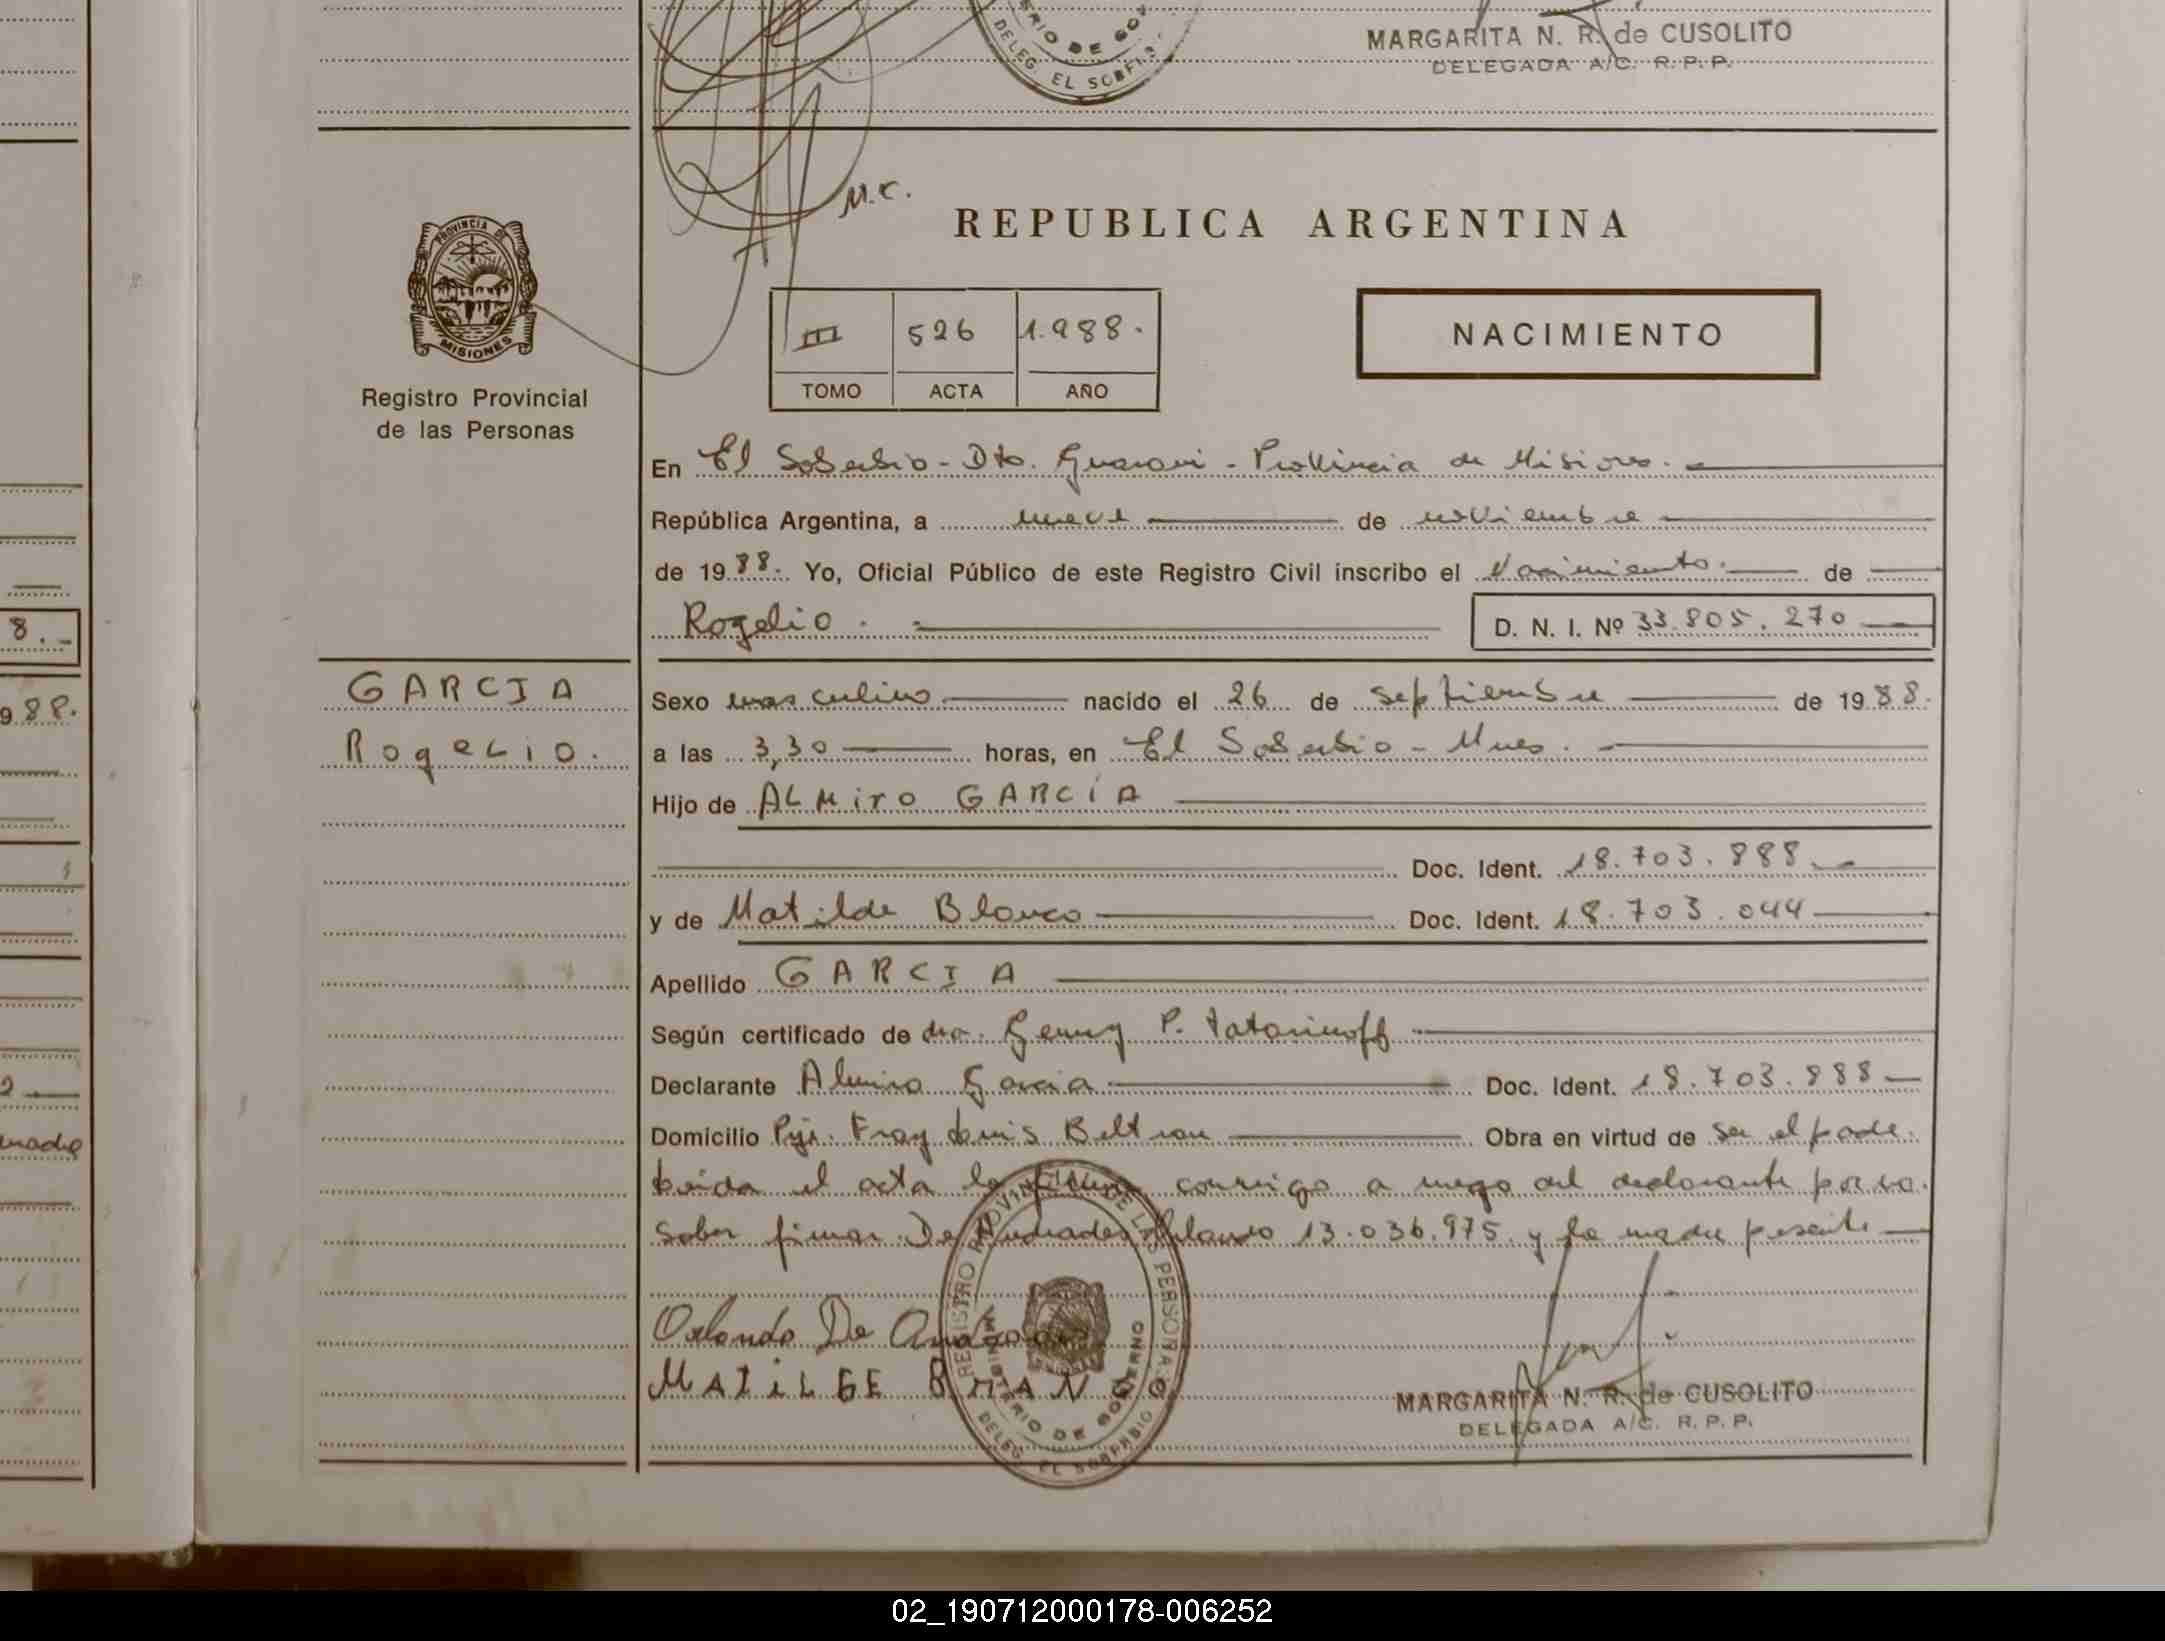 MARGARITA N. R. de CUSOLITO
DELEGADA A/C. R. P. P.
DELEG. EL SOBERBIO
M.C.
PROVINCIA DE
MISIONES
Registro Provincial
de las Personas
REPUBLICA ARGENTINA
III 526 1.988.
TOMO ACTA AÑO
NACIMIENTO
En El Soberbio - Dto. Guarani - Provincia de Misiones.
República Argentina, a nueve de noviembre
de 1988. Yo, Oficial Público de este Registro Civil inscribo el Nacimiento. de
Rogelio. D. N. I. Nº 33.805.270
8.-
988.
GARCIA
Rogelio.
Sexo masculino nacido el 26 de Septiembre de 1988.
a las 3,30 horas, en El Soberbio - Mnes.
Hijo de ALMiro GARCÍA
Doc. Ident. 18.703.888.
y de Matilde Blanco Doc. Ident. 18.703.044
Apellido GARCIA
Según certificado de dra. Genny P. Tatarinoff
Declarante Almiro Garcia Doc. Ident. 18.703.888
Domicilio Pje. Fray Luis Beltran Obra en virtud de Ser el padre.
Leida el acta la firma conmigo a ruego del declarante por no
saber firmar De Andrades Orlando 13.036.975 y la madre presente
Orlando De Andrades
REGISTRO PROVINCIAL DE LAS PERSONAS
MINISTERIO DE GOBIERNO
DELEG. EL SOBERBIO
MARGARITA N. R. de CUSOLITO
DELEGADA A/C. R. P. P.
02_190712000178-006252